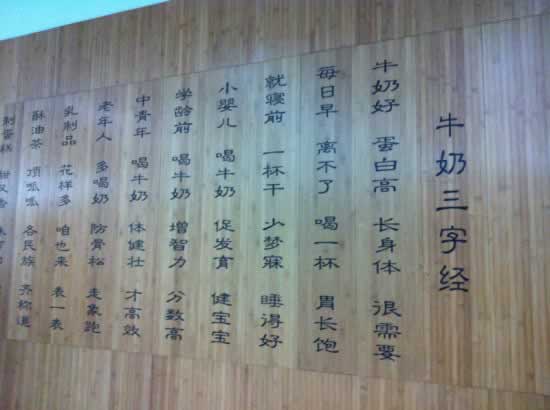 牛奶三字经
牛奶好 蛋白高 长身体 很需要
每日早 离不了 喝一杯 胃长饱
就寝前 一杯干 少梦寐 睡得好
小婴儿 喝牛奶 促发育 健宝宝
学龄前 喝牛奶 增智力 分数高
中青年 喝牛奶 体健壮 才高效
老年人 多喝奶 防骨松 走象跑
乳制品 花样多 咱也来 表一表
酥油茶 顶呱呱 各民族 齐称道
制蛋糕